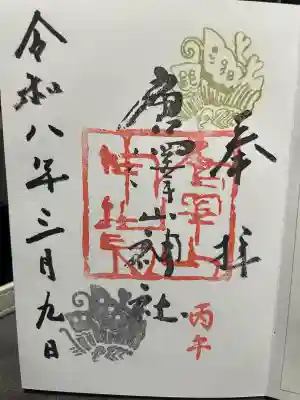 奉拝
唐澤山神社
丙午
令和八年三月九日